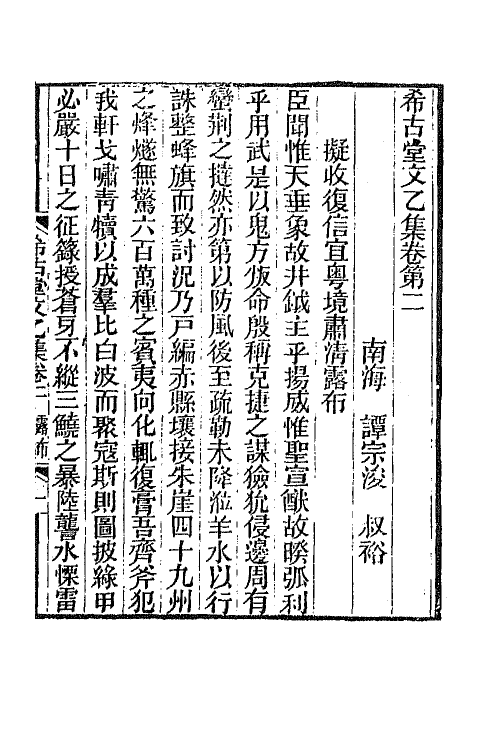 希古堂文乙集卷第二
南海　譚宗浚　叔裕
擬收復信宜粤境肅清露布
臣聞惟天垂象故井鉞主乎揚威惟聖宣猷故暌弧利
乎用武是以鬼方叛命殷稱克捷之謀獫狁侵邊周有
蠻荆之撻然亦第以防風後至疏勒未降涖羊水以行
誅整蜂旗而致討況乃戸編赤縣壤接朱崖四十九州
之烽燧無驚六百萬種之賓夷向化輒復膏吾齊斧犯
我軒戈嘯靑犢以成羣比白波而聚寇斯則圖披綠甲
必嚴十日之征籙授蒼牙不縱三鱙之暴陸讋水慄雷
希古堂文乙集卷二　露布　一